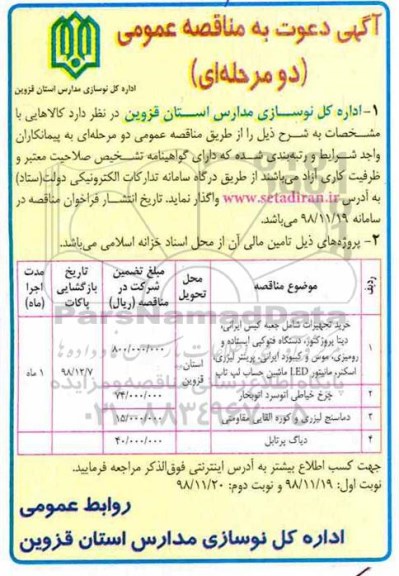 آگهی دعوت به مناقصه عمومی
(دو مرحله‌ای)
اداره کل نوسازی مدارس استان قزوین
۱- اداره کل نوسازی مدارس استان قزوین در نظر دارد کالاهایی با
مشخصات به شرح ذیل را از طریق مناقصه عمومی دو مرحله‌ای به پیمانکاران
واجد شرایط و رتبه‌بندی شده که دارای گواهینامه تشخیص صلاحیت معتبر و
ظرفیت کاری آزاد می‌باشند از طریق درگاه سامانه تدارکات الکترونیکی دولت(ستاد)
به آدرس www.setadiran.ir واگذار نماید. تاریخ انتشار فراخوان مناقصه در
سامانه ۹۸/۱۱/۱۹ می‌باشد.
۲- پروژه‌های ذیل تامین مالی آن از محل اسناد خزانه اسلامی می‌باشد.
ردیف موضوع مناقصه محل تحویل مبلغ تضمین شرکت در مناقصه (ریال) تاریخ بازگشایی پاکات مدت اجرا (ماه)
۱ خرید تجهیزات شامل جعبه کیس ایرانی،
دیتا پروژکتور، دستگاه فتوکپی ایستاده و
رومیزی، موس و کیبورد ایرانی، پرینتر لیزری،
اسکنر، مانیتور LED ماشین حساب لپ تاپ
۸۰۰/۰۰۰/۰۰۰
استان قزوین
۹۸/۱۲/۷
۱ ماه
۲ چرخ خیاطی اتوسرد اتوبخار ۷۴/۰۰۰/۰۰۰
۳ دماسنج لیزری و کوره القایی مقاومتی ۱۵/۰۰۰/۰۰۰
۴ دیاگ پرتابل ۴۰/۰۰۰/۰۰۰
ParsNamadData
پایگاه اطلاع رسانی مناقصه و مزایده
جهت کسب اطلاع بیشتر به آدرس اینترنتی فوق‌الذکر مراجعه فرمایید.
نوبت اول: ۹۸/۱۱/۱۹ و نوبت دوم: ۹۸/۱۱/۲۰
روابط عمومی
اداره کل نوسازی مدارس استان قزوین